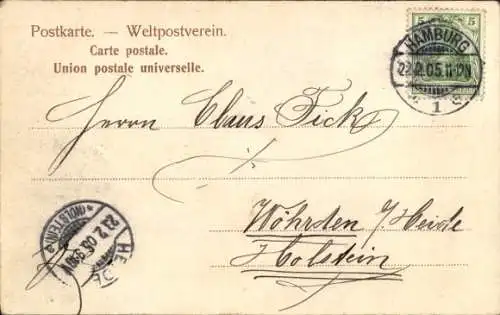 Postkarte. — Weltpostverein.
Carte postale.
Union postale universelle.
5 5
HAMBURG
05.11-12N
1
Herrn Claus Fick
Wöhrden b/Heide
Holstein
HEIDE
(HOLSTEIN)